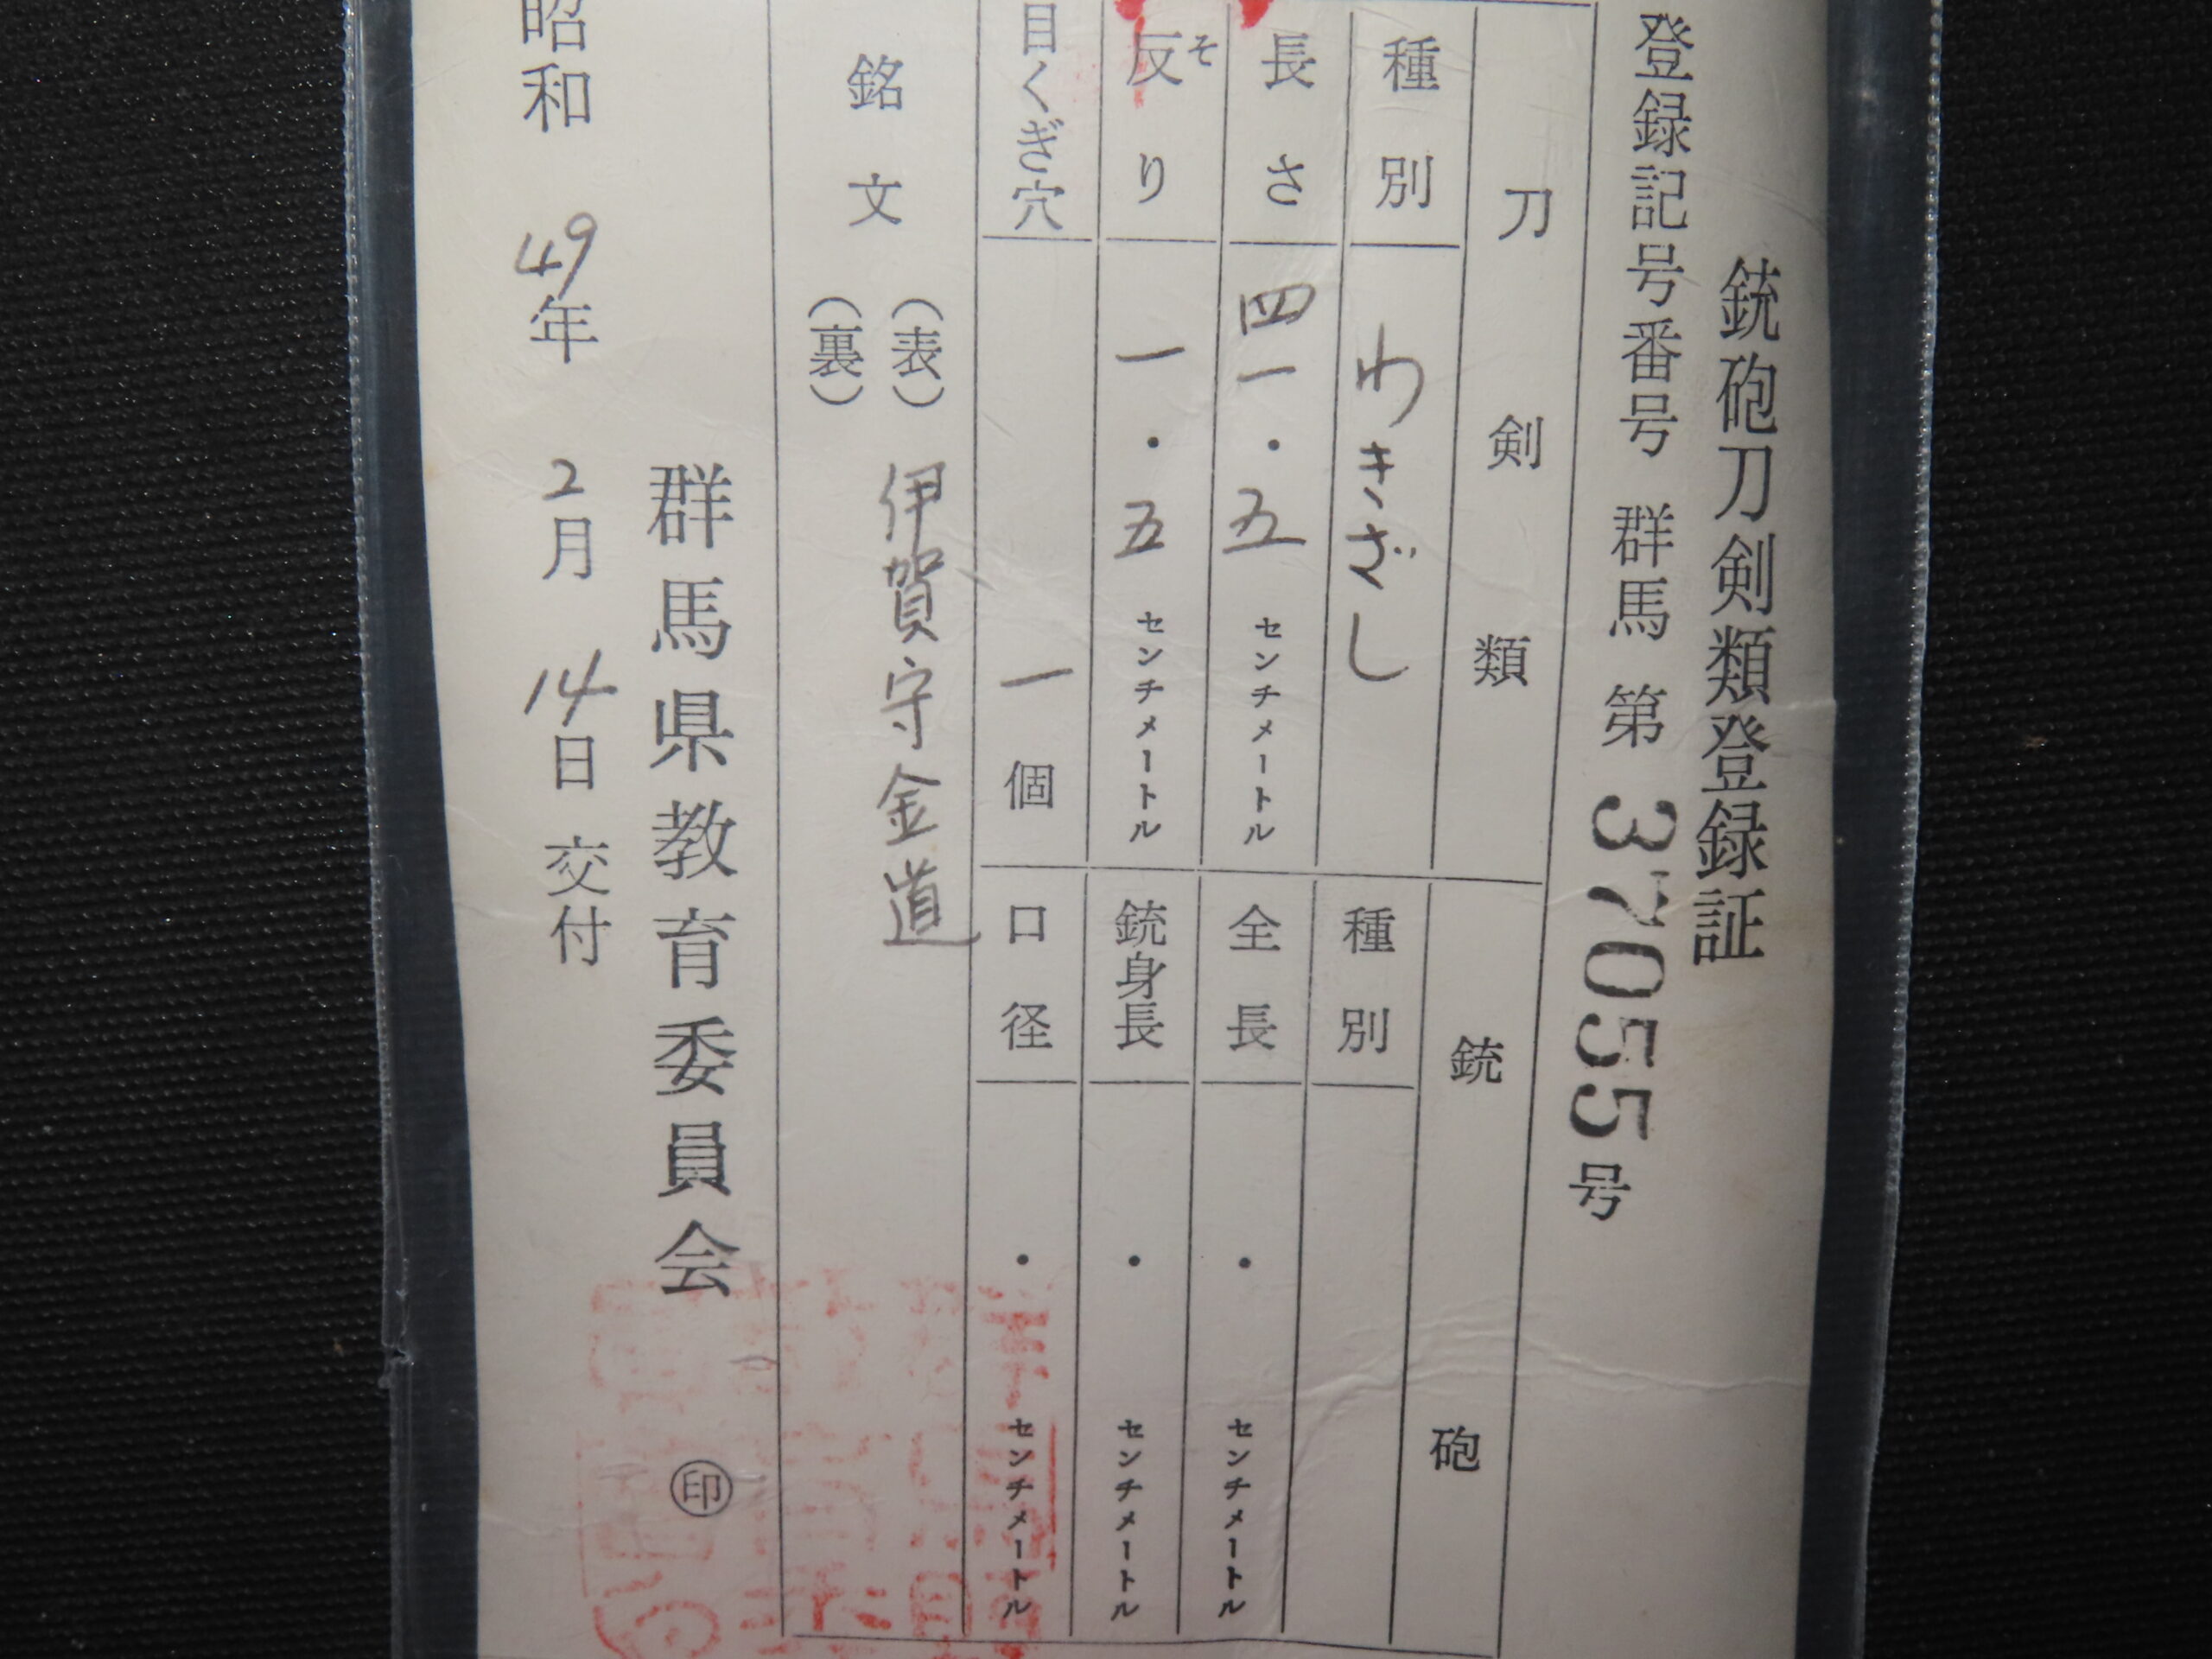 銃砲刀剣類登録証
登録記号番号 群馬 第 37055 号
刀剣類
種別 わきざし
長さ 四一・五 センチメートル
反り そ 一・五 センチメートル
目くぎ穴 一個
銃砲
種別
全長 ・ センチメートル
銃身長 ・ センチメートル
口径 ・ センチメートル
銘文
(表) 伊賀守金道
(裏)
群馬県教育委員会 ㊞
昭和 49年 2月 14日 交付